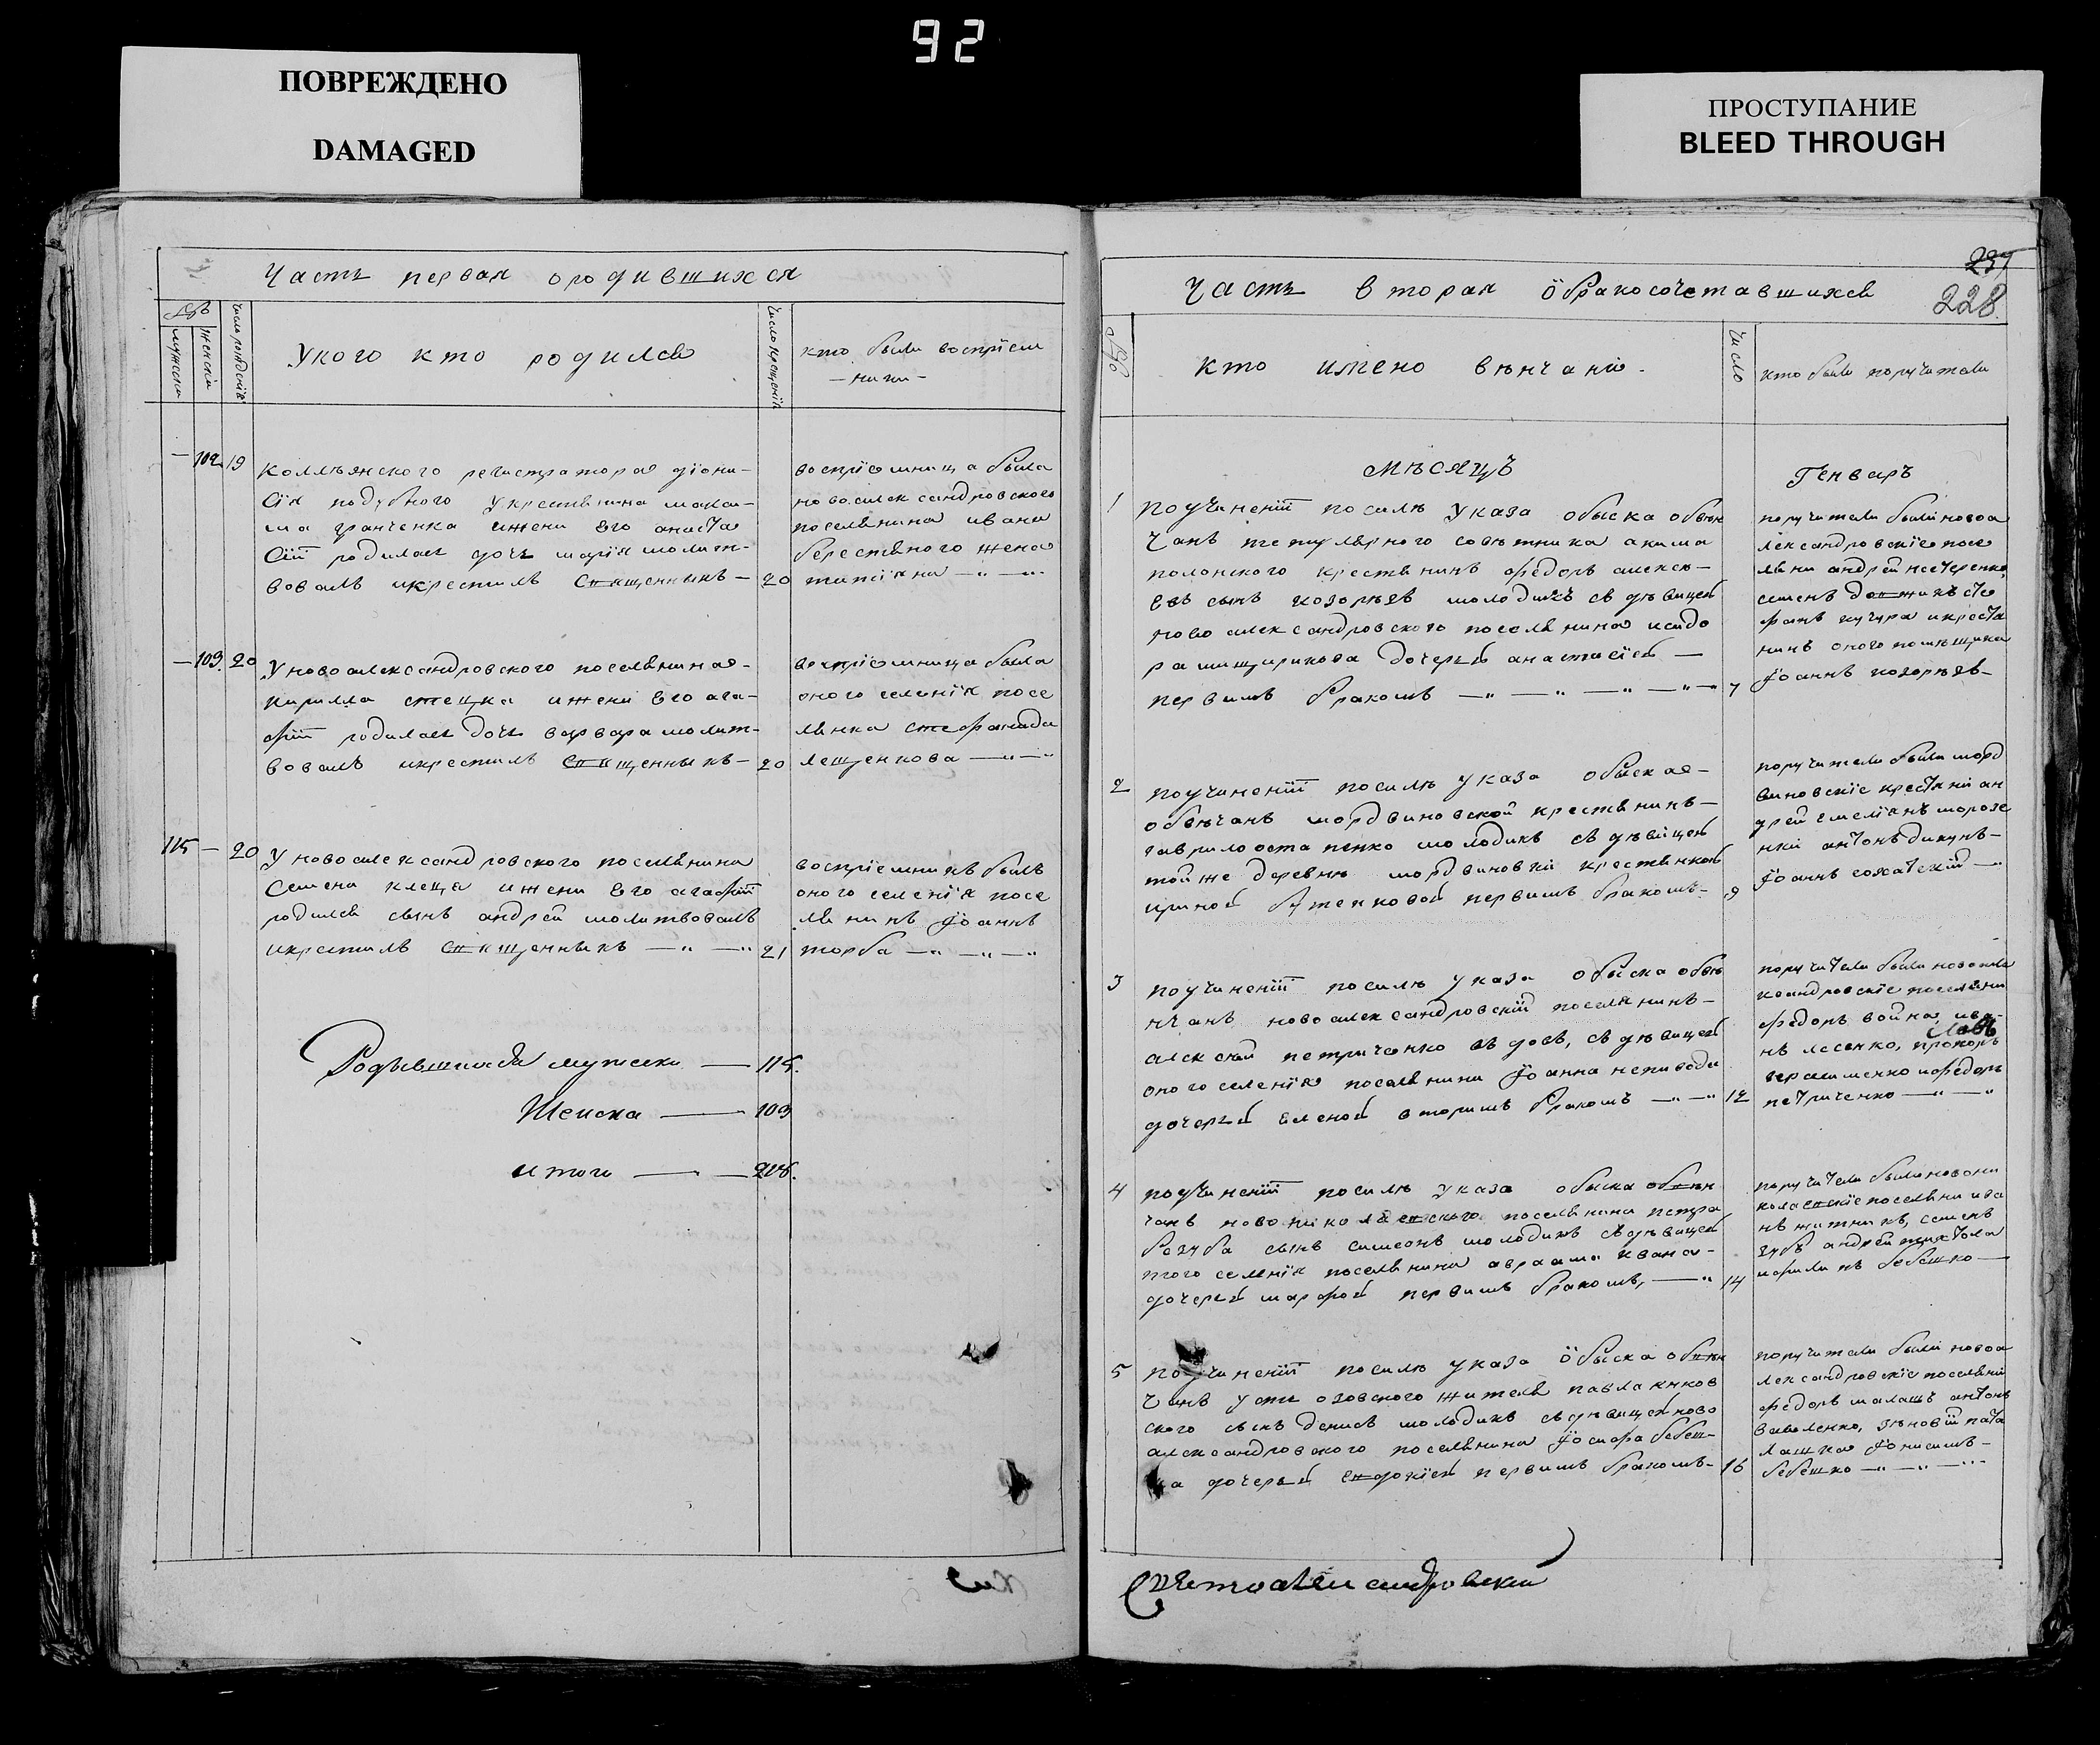 92
ПОВРЕЖДЕНО
DAMAGED
ПРОСТУПАНИЕ
BLEED THROUGH
Часть первая ородившихся
мужеска
женска
число рождениѣ
Укого кто родился
число крещенiя
кто были воспрiем
— ники —
— 102 19
колежского регистратора дiони-
сiя подубного Укрестьянина макси-
ма гранченка ижени его анаста
сiи родилась дочь марiя молит-
вовалъ икрестилъ священникъ — 20
воспрiемница была
новоалександровского
поселянина ивана
берестяного жена
татiяна — „ — „
— 103. 20
У новоалександровского поселянина-
кирилла стецка ижени его ага-
фiи родилась дочь варвара молит-
вовалъ икрестилъ священникъ — 20
воспрiемница была
оного селенiя посе
лянка стефанида
лещенкова — „ — „
115 — 20
У новоалександровского поселянина
Семена клеща ижени Его агафiи
родился сынъ андрей молитвовалъ
икрестилъ священникъ — „ — „ 21
воспрiемникъ былъ
оного селенiя посе
лянинъ Iоаннъ
торба — „ — „ — „
Родывшихся мужеска — 115.
Женска — 103
итого — — 218.
237
228.
Часть вторая Обракосочетавшихся
кто имено вѣнчанiе.
число
кто были поручители
мѣсяцъ
Генваръ
1
поучиненiи посилѣ указа обыска обвѣн
чанъ титулярного совѣтника акима
полонского крестянинъ федоръ алексѣ-
евъ сынъ козорѣзъ молодикъ съ дѣвицей
ново александровского поселянина исидо
ра мищирикова дочерью анастасiей —
первимъ бракомъ — „ — „ — „ — „ — 7
поручители были новоа
лександровскiе посе
ляни андрей нестеренко,
семенъ должикъ сте
фанъ кучура икрестя
нинъ оного помѣщика
Iоаннъ козорѣзъ-
2
поучиненiи посилѣ указа обыска-
обвѣчанъ мордвиновской крестянинъ-
гаврило остапенко молодикъ съ дѣвицей
той же деревнѣ мордвиновки крестянкой
ириной бутенковой первимъ бракомъ- 9
поручители были морд
виновскiе крестяни ан
дрей емелiянъ морозе
нки антонъ дикунъ-
Iоаннъ сохатскiй — „
3
поучиненiи посилѣ указа обыска обвѣ
нчанъ новоалександровскiй поселянинъ-
алексѣй петриченко вдовъ, съ дѣвицей
оного селенiя поселянина Iоанна непивода
дочерью еленой вторимъ бракомъ — „ — „ 12
поручители были новоале
ксандровскiе поселяни
федоръ война, ива-
нъ лесенко, прокопъ
герасименко ифедоръ
петриченко — „ — „
4
поучиненiи посилѣ указа обыска обвѣн
чанъ новониколаевского поселянина петра
беззуба сынъ симеонъ молодикъ съ дѣвицей
того селенiя поселянина авраама кваша-
дочерью марфой первимъ бракомъ, — „ 14
поручители были новони
колаевскiе поселяни ива
нъ житникъ, семенъ
зубъ андрей
5
поучиненiи посилѣ указа Обыска обвѣн
чанъ усть азовского жителя павла
ского сынъ денисъ молодикъ съ дѣвицей ново
александровского поселянина Iосифа бебеш-
ка дочерью евдокiей первимъ бракомъ- 16
поручители были новоа
лександровскiе поселяни
федоръ малашъ антонъ
зѣновiй пата
лашка Iонисимъ-
бебешко — „ — „ — „